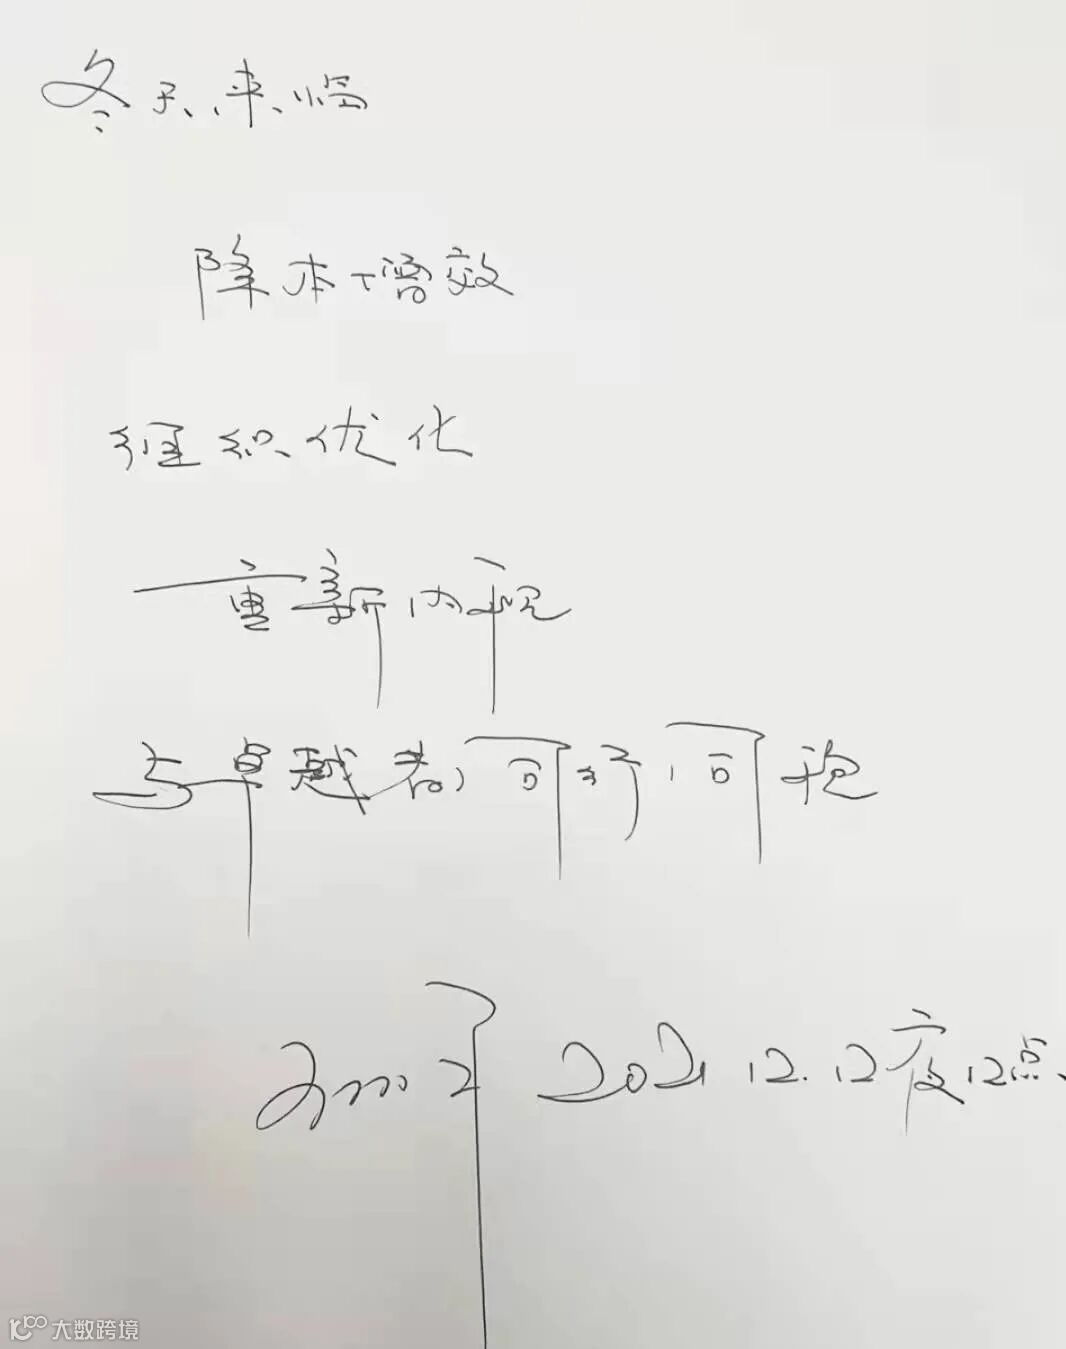 冬天来临
降本增效
组织优化
重新内视
与卓越者,同行,同袍
2021.12.12夜12点
大数跨境